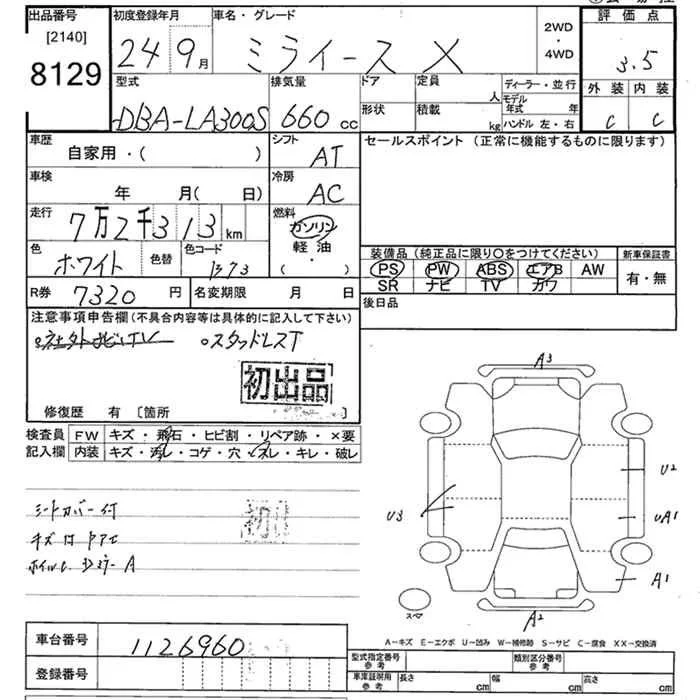 出品番号 初度登録年月 車名・グレード 2WD・4WD 評価点
[2140]
8129 24 9月 ミライース X 3.5
型式 排気量 ドア 定員 人 ディーラー・並行 外装 内装
DBA-LA300S 660cc 形状 積載 kg モデル年式 年 ハンドル 左・右 C C
車歴 自家用・( ) シフト AT セールスポイント (正常に機能するものに限ります)
車検 年 月( 日) 冷房 AC
走行 7万2千313km 燃料 ガソリン 軽油・( )
色 ホワイト 色替 色コード
装備品(純正品に限り○をつけてください) 新車保証書
PS PW ABS エアB AW 有・無
SR ナビ TV カワ
R券 7320円 名変期限 月 日 後日品
注意事項申告欄(不具合内容等は具体的に記入して下さい)
社外ナビ・TV ○スタッドレスT
初出品
修復歴 有 [箇所 ]
検査員記入欄 FW キズ・飛石・ヒビ割・リペア跡・×要
内装 キズ・汚レ・コゲ・穴・スレ・キレ・破レ
シートカバー付
初
A3
U2
U3
UA1
A1
スペア
A2
A-キズ E-エクボ U-凹み W-補修跡 S-サビ C-腐食 XX-交換済
車台番号 1126960 型式指定番号 参考 類別区分番号 参考
登録番号 車庫証明用 参考 長さ cm 幅 cm 高さ cm